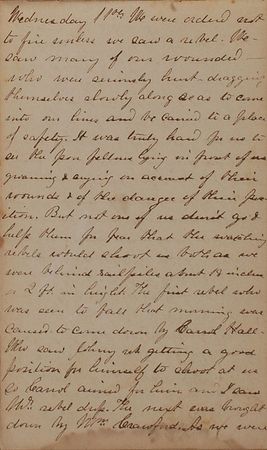 Wednesday 11th We were orderd not
to fire unless we saw a rebel. We
saw many of our wounded
who were seriously hurt dragging
themselves slowly along so as to come
into our lines and be carried to a place
of safety. It was truly hard for us to
see the poor fellows lying in front of us
groaning & crying on account of their
wounds & of the danger of their pos
ition. But not one of us durst go &
help them for fear that the
rebels would shoot us both as we
were behind rail piles about 18 inches
or 2 ft in height. The first rebel who
was seen to fall that morning was
caused to come down by Carrol Hall
Who saw Johny reb getting a good
position for himself to shoot at us
so Carrol aimed for him and I saw
Mr. rebel drop. The next was brought
down by Wm Crawford. As we were